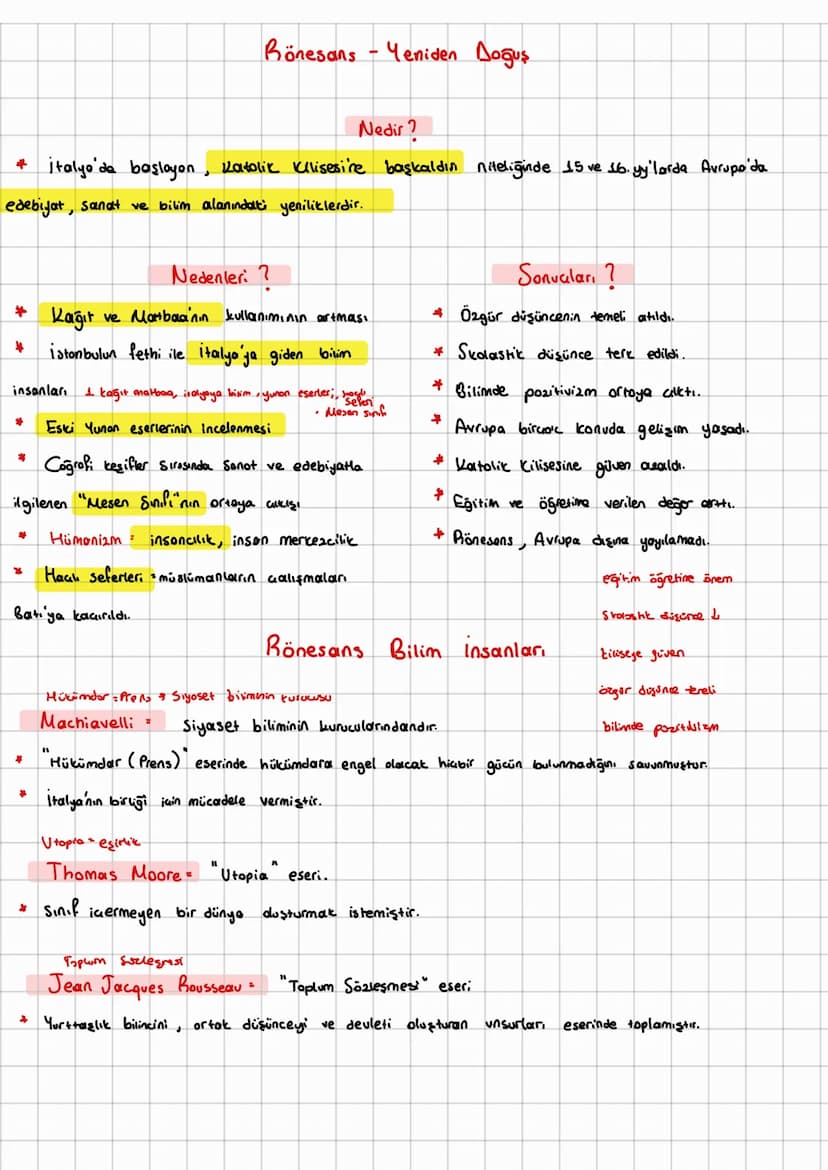 Rönesans - Yeniden Doğuş
Nedir?
* İtalya'da başlayan, Katolik Kilisesi'ne başkaldırı niteliğinde 15 ve 16. yy'larda Avrupa'da
edebiyat, sanat ve bilim alanındaki yeniliklerdir.
Nedenleri?
* Kağıt ve Matbaa'nın kullanımının artması
* İstanbulun fethi ile İtalya'ya giden bilim
insanları
kağıt matbaa, italyaya bilim, yunan eserleri, haçlı
seferi
• Mesen sınıfı
* Eski Yunan eserlerinin İncelenmesi
* Coğrafi keşifler sırasında Sanat ve edebiyatla
ilgilenen "Mesen Sınıfı"nın ortaya çıkışı
* Hümanizm = insancılık, insan merkezcilik
* Haçlı seferleri = müslümanların çalışmaları
Batı'ya kaçırıldı.
Sonuçları?
* Özgür düşüncenin temeli atıldı.
* Skolastik düşünce terk edildi.
* Bilimde pozitivizm ortaya çıktı.
* Avrupa birçok konuda gelişim yaşadı.
* Katolik Kilisesine güven azaldı.
* Eğitim ve öğretime verilen değer arttı.
* Rönesans, Avrupa dışına yayılamadı.
eğitim öğretime önem
Skolastik düşünce ↓
kiliseye güven
özgür düşünce temeli
bilimde pozitivizm
Rönesans Bilim insanları
Hükümdar = Prens → Siyaset biliminin kurucusu
Machiavelli = Siyaset biliminin kurucularındandır.
* "Hükümdar (Prens)" eserinde hükümdara engel olacak hiçbir gücün bulunmadığını savunmuştur.
* İtalya'nın birliği için mücadele vermiştir.
Utopia = eşitlik
Thomas Moore = "Utopia" eseri.
* Sınıf içermeyen bir dünya oluşturmak istemiştir.
Toplum Sözleşmesi
Jean Jacques Rousseau = "Toplum Sözleşmesi" eseri
* Yurttaşlık bilincini, ortak düşünceyi ve devleti oluşturan unsurları eserinde toplamıştır.